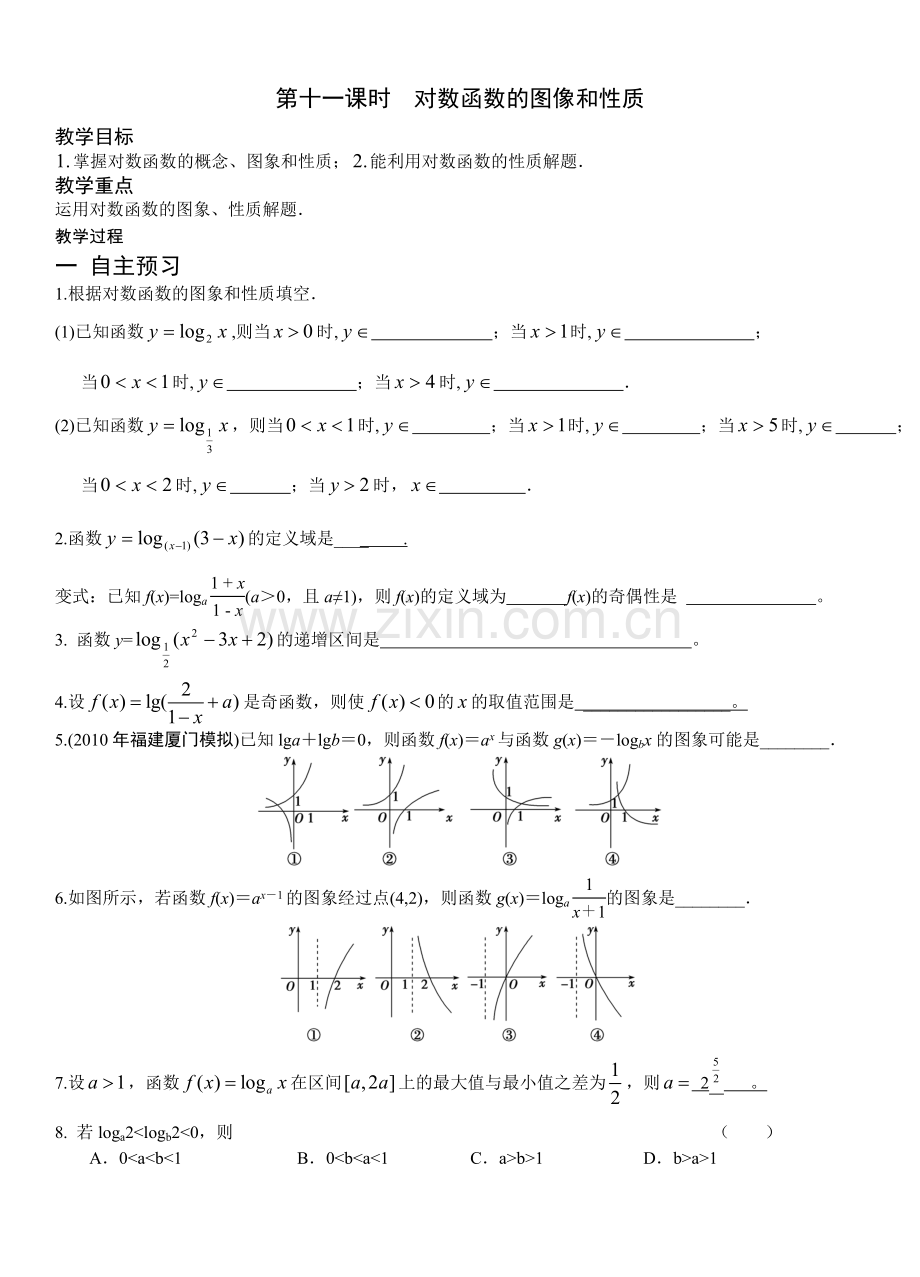 第十一课时　对数函数的图像和性质
教学目标
1.掌握对数函数的概念、图象和性质；2.能利用对数函数的性质解题．
教学重点
运用对数函数的图象、性质解题．
教学过程
一 自主预习
1.根据对数函数的图象和性质填空．
(1)已知函数 y = log₂ x ,则当 x > 0 时, y ∈ ______；当 x > 1 时, y ∈ ______；
当 0 < x < 1 时, y ∈ ______；当 x > 4 时, y ∈ ______．
(2)已知函数 y = log_{1/3} x，则当 0 < x < 1 时, y ∈ ______；当 x > 1 时, y ∈ ______；当 x > 5 时, y ∈ ______；
当 0 < x < 2 时, y ∈ ______；当 y > 2 时，x ∈ ______．
2.函数 y = log_{(x−1)} (3 − x) 的定义域是______.
变式：已知 f(x)=log_a (1 + x)/(1 - x) (a＞0，且 a≠1)，则 f(x)的定义域为______f(x)的奇偶性是 ______。
3. 函数 y= log_{1/2} (x² − 3x + 2) 的递增区间是______。
4.设 f(x) = lg(2/(1−x) + a) 是奇函数，则使 f(x) < 0 的 x 的取值范围是______。
5.(2010 年福建厦门模拟)已知 lga＋lgb＝0，则函数 f(x)＝a^x 与函数 g(x)＝－log_b x 的图象可能是________．
y y y y
1 1 1 1
O 1 x O 1 x O 1 x O 1 x
① ② ③ ④
6.如图所示，若函数 f(x)＝a^{x－1} 的图象经过点(4,2)，则函数 g(x)＝log_a 1/(x＋1) 的图象是________．
y y y y
O 1 2 x O 1 2 x −1 O x −1 O x
① ② ③ ④
7.设 a > 1，函数 f(x) = log_a x 在区间 [a,2a] 上的最大值与最小值之差为 1/2，则 a = 2^{5/2} 。
8. 若 log_a2<log_b2<0，则 （　　）
A．0<a<b<1 B．0<b<a<1 C．a>b>1 D．b>a>1
www.zixin.com.cn